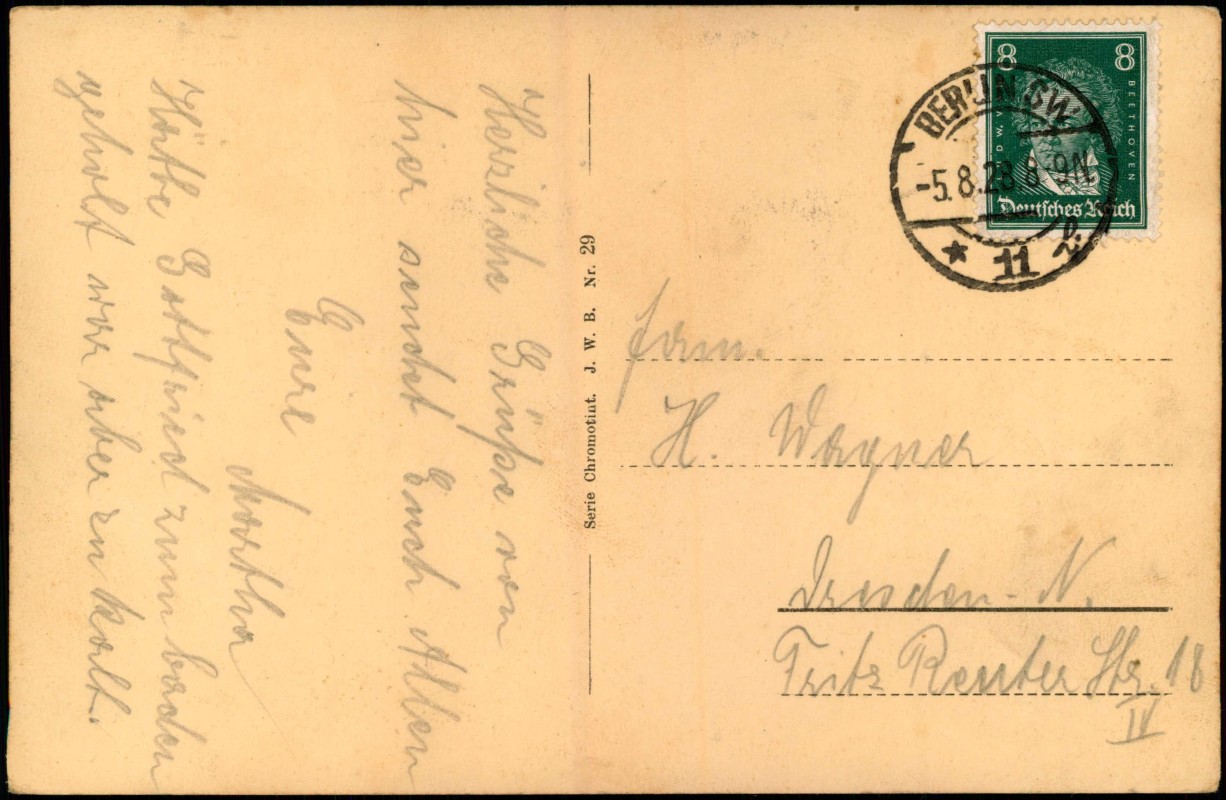 Herzliche Grüße von
hier sendet Euch Allen
Eure
Martha
Hätte Gottfried zum baden
geholt war aber zu kalt.
Serie Chromotint. J. W. B. Nr. 29
8 8
BEETHOVEN
Deutsches Reich
BERLIN SW.
-5.8.28 8-9N.
* 11
Fam.
H. Wagner
Dresden-N.
Fritz Reuter Str. 18
IV